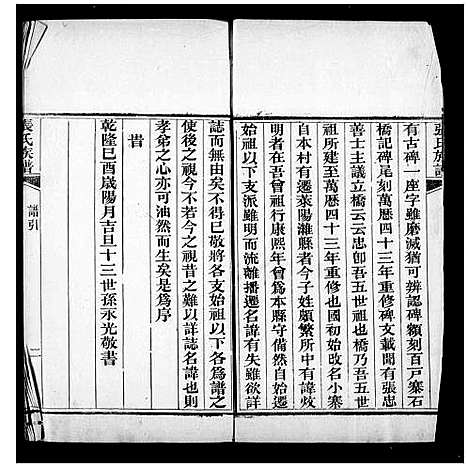 張氏族譜
有古碑一座字雖磨滅猶可辨認碑額刻百戸寨石
橋記碑尾刻萬歷四十三年重修碑文載閒有張忠
善士主議立橋云云忠卽吾五世祖也橋乃吾五世
祖所建至萬歷四十三年重修也國初始改名小寨
自本村有遷萊陽濰縣者今子姓頗繁所中有諱
明者在吾曾祖行康熙年曾爲本縣守備然自始祖
始祖以下支派雖明而流離播遷名諱有失雖欲詳
誌而無由矣不得已敬將各支始祖以下各爲譜之
使後之視今不若今之視昔之難以詳誌名諱也則
孝弟之心亦可油然而生矣是爲序
旹
乾隆己酉歲陽月吉旦十三世孫永光敬書
張氏族譜
譜引
一